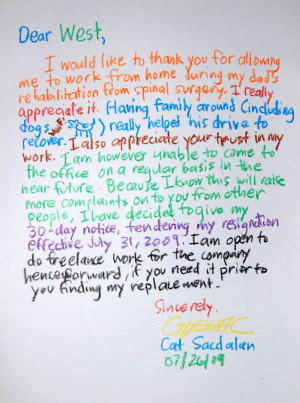 Dear West,
I would like to thank you for allowing
me to work from home during my dad's
rehabilitation from spinal surgery. I really
appreciate it. Having family around (including
dogs ) really helped his drive to
recover. I also appreciate your trust in my
work. I am however unable to come to
the office on a regular basis in the
near future. Because I know this will raise
more complaints on to you from other
people, I have decided to give my
30-day notice, tendering my resignation
effective July 31, 2009. I am open to
do freelance work for the company
henceforward, if you need it prior to
you finding my replacement.
Sincerely,
Cat Sacdalan
07/26/09